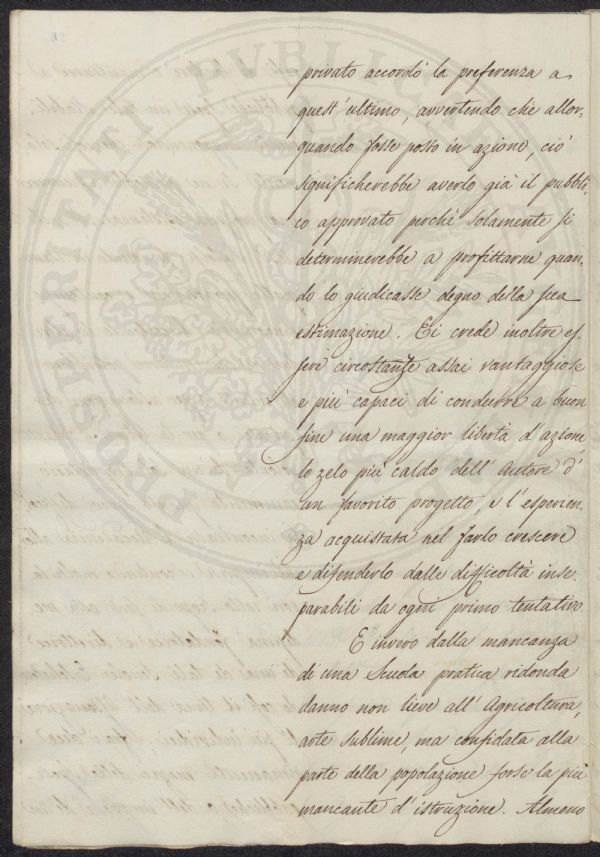 privato accordò la preferenza a
quest'ultimo, avvertendo che allor-
quando fosse posto in azione, ciò
significherebbe averlo già il pubbli-
co approvato perchè solamente si
determinerebbe a profittarne quan-
do lo giudicasse degno della sua
estimazione. Ei crede inoltre es-
sere circostanze assai vantaggiose
e più capaci di condurre a buon
fine una maggior libertà d'azione,
lo zelo più caldo dell'Autore d'
un favorito progetto, e l'esperien-
za acquistata nel farlo crescere
e difenderlo dalle difficoltà inse-
parabili da ogni primo tentativo
E invero dalla mancanza
di una Scuola pratica ridonda
danno non lieve all'Agricoltura,
arte sublime, ma confidata alla
parte della popolazione forse la più
mancante d'istruzione. Almeno
PIOSISERTATI PVBLICAE